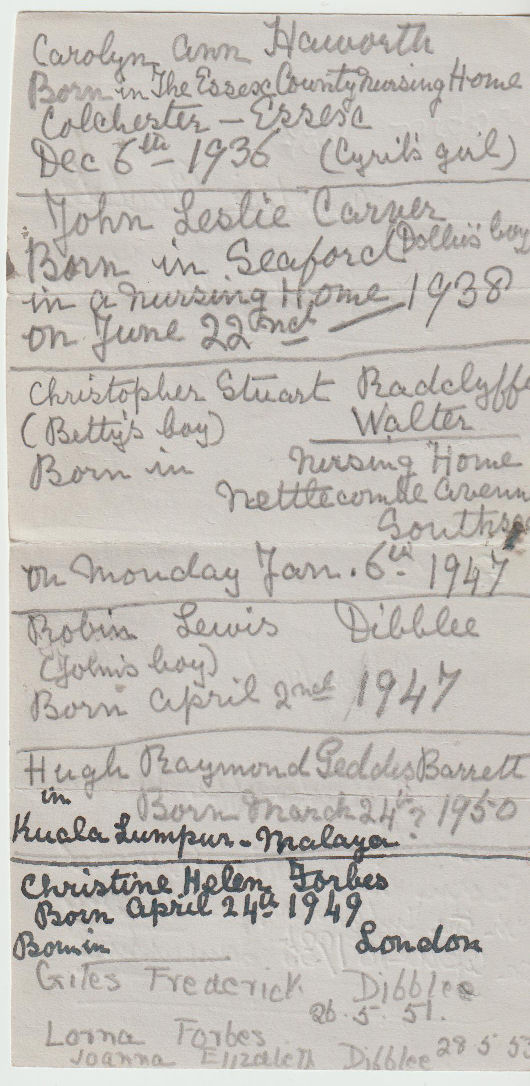 Carolyn Ann Haworth
Born in The Essex County Nursing Home
Colchester – Essex
Dec 6th – 1936 (Cyril's girl)
John Leslie Carver
Born in Seaford (Dollie's boy
in a nursing Home 1938
on June 22nd
Christopher Stuart Radclyffe
(Betty's boy) Walter
Born in Nursing Home
Nettlecombe Avenu
Souths
on Monday Jan. 6th 1947
Robin Lewis Dibblee
(John's boy)
Born April 2nd 1947
Hugh Raymond Geddes Barrett
in Born March 24th? 1950
Kuala Lumpur - Malaya.
Christine Helen Forbes
Born April 24th 1949
Born in London
Giles Frederick Dibblee
26.5.51.
Lorna Forbes
Joanna Elizabeth Dibblee 28 5 53